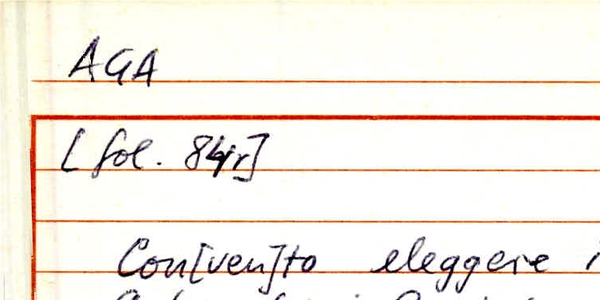 AGA
[fol. 84r]
Con[ven]to eleggere